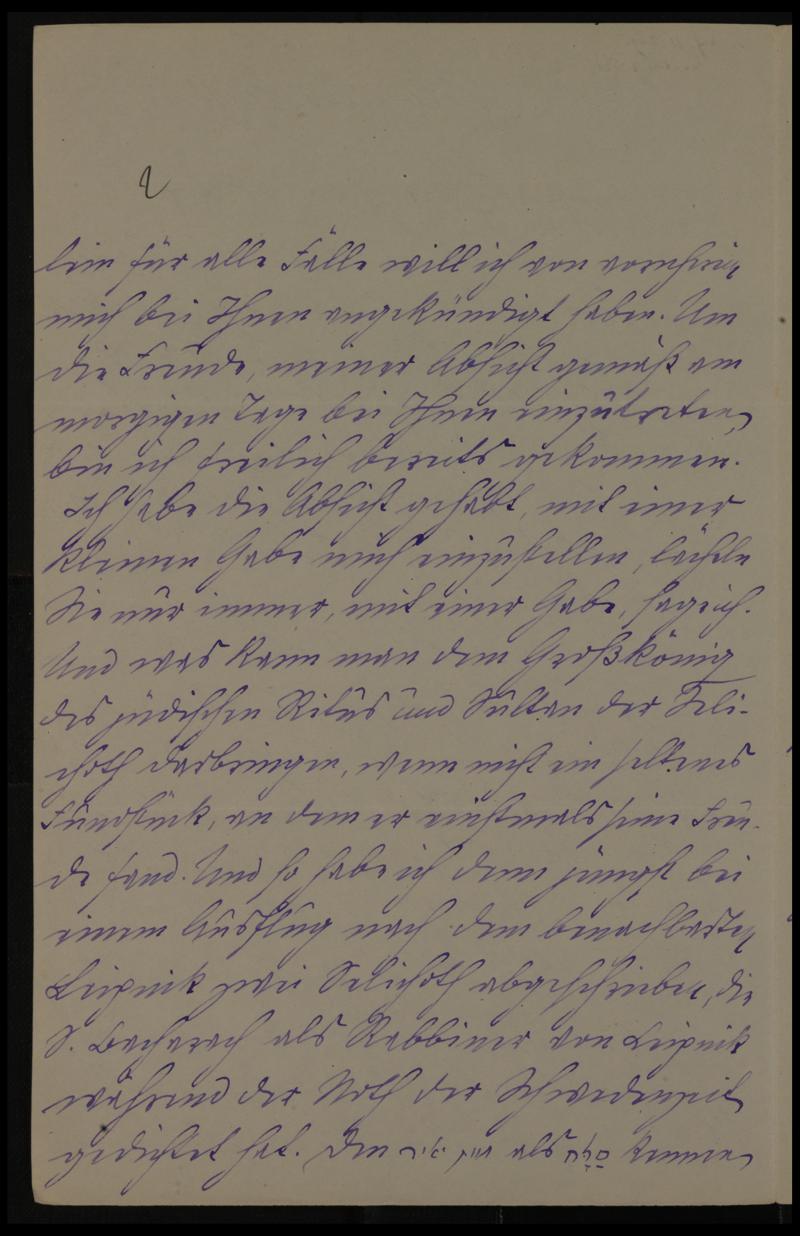 2
lein für alle Fälle will ich von vornherein
mich bei Ihnen angekündigt haben. Um
die Freude, meiner Absicht gemäß am
morgigen Tage bei Ihnen einzutreten,
bin ich freilich bereits gekommen.
Ich habe die Absicht gehabt, mit einer
kleinen Gabe mich einzustellen, lächeln
Sie nur immer, mit einer Gabe, sag ich.
Und was kann man dem Großkönig
des jüdischen Ritus und Sultan der Seli-
choth darbringen, wenn nicht ein seltenes
Fundstück, an dem er einstmals seine Freu-
de fand. Und so habe ich denn jüngst bei
einem Ausflug nach dem benachbarten
Leipnik zwei Selichoth abgeschrieben, die
S. Bacharach als Rabbiner von Leipnik
während der Noth der Schwedenzeit
gedichtet hat. Den חות יאיר als kennen